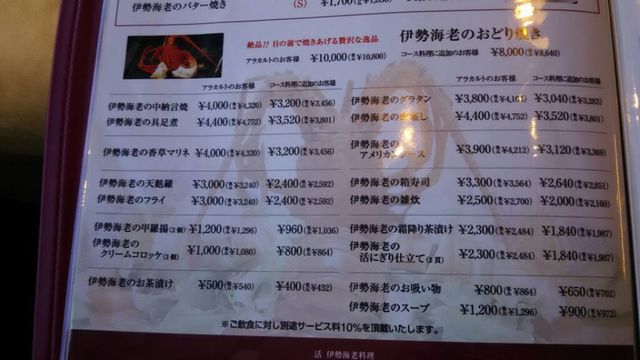 伊勢海老のバター焼き (S) ¥1,700
絶品!! 目の前で焼きあげる贅沢な逸品 伊勢海老のおどり焼き
アラカルトのお客様 ¥10,000(¥10,800) コース料理に追加のお客様 ¥8,000(¥8,640)
アラカルトのお客様 コース料理に追加のお客様 アラカルトのお客様 コース料理に追加のお客様
伊勢海老の中納言焼 ¥4,000(¥4,320) ¥3,200(¥3,456) 伊勢海老のグラタン ¥3,800(¥4,104) ¥3,040(¥3,283)
伊勢海老の具足煮 ¥4,400(¥4,752) ¥3,520(¥3,801) 伊勢海老の 蒸し ¥4,400(¥4,752) ¥3,520(¥3,801)
伊勢海老の香草マリネ ¥4,000(¥4,320) ¥3,200(¥3,456) 伊勢海老の
アメリカンソース ¥3,900(¥4,212) ¥3,120(¥3,369)
伊勢海老の天麩羅 ¥3,000(¥3,240) ¥2,400(¥2,592) 伊勢海老の箱寿司 ¥3,300(¥3,564) ¥2,640(¥2,851)
伊勢海老のフライ ¥3,000(¥3,240) ¥2,400(¥2,592) 伊勢海老の雑炊 ¥2,500(¥2,700) ¥2,000(¥2,160)
伊勢海老の甲羅揚(2個) ¥1,200(¥1,296) ¥960(¥1,036) 伊勢海老の霜降り茶漬け ¥2,300(¥2,484) ¥1,840(¥1,987)
伊勢海老の
クリームコロッケ(2個) ¥1,000(¥1,080) ¥800(¥864) 伊勢海老の
活にぎり仕立て(2貫) ¥2,300(¥2,484) ¥1,840(¥1,987)
伊勢海老のお茶漬け ¥500(¥540) ¥400(¥432) 伊勢海老のお吸い物 ¥800(¥864) ¥650(¥702)
伊勢海老のスープ ¥1,200(¥1,296) ¥900(¥972)
※ご飲食に対し別途サービス料10%を頂戴いたします。
活 伊勢海老料理